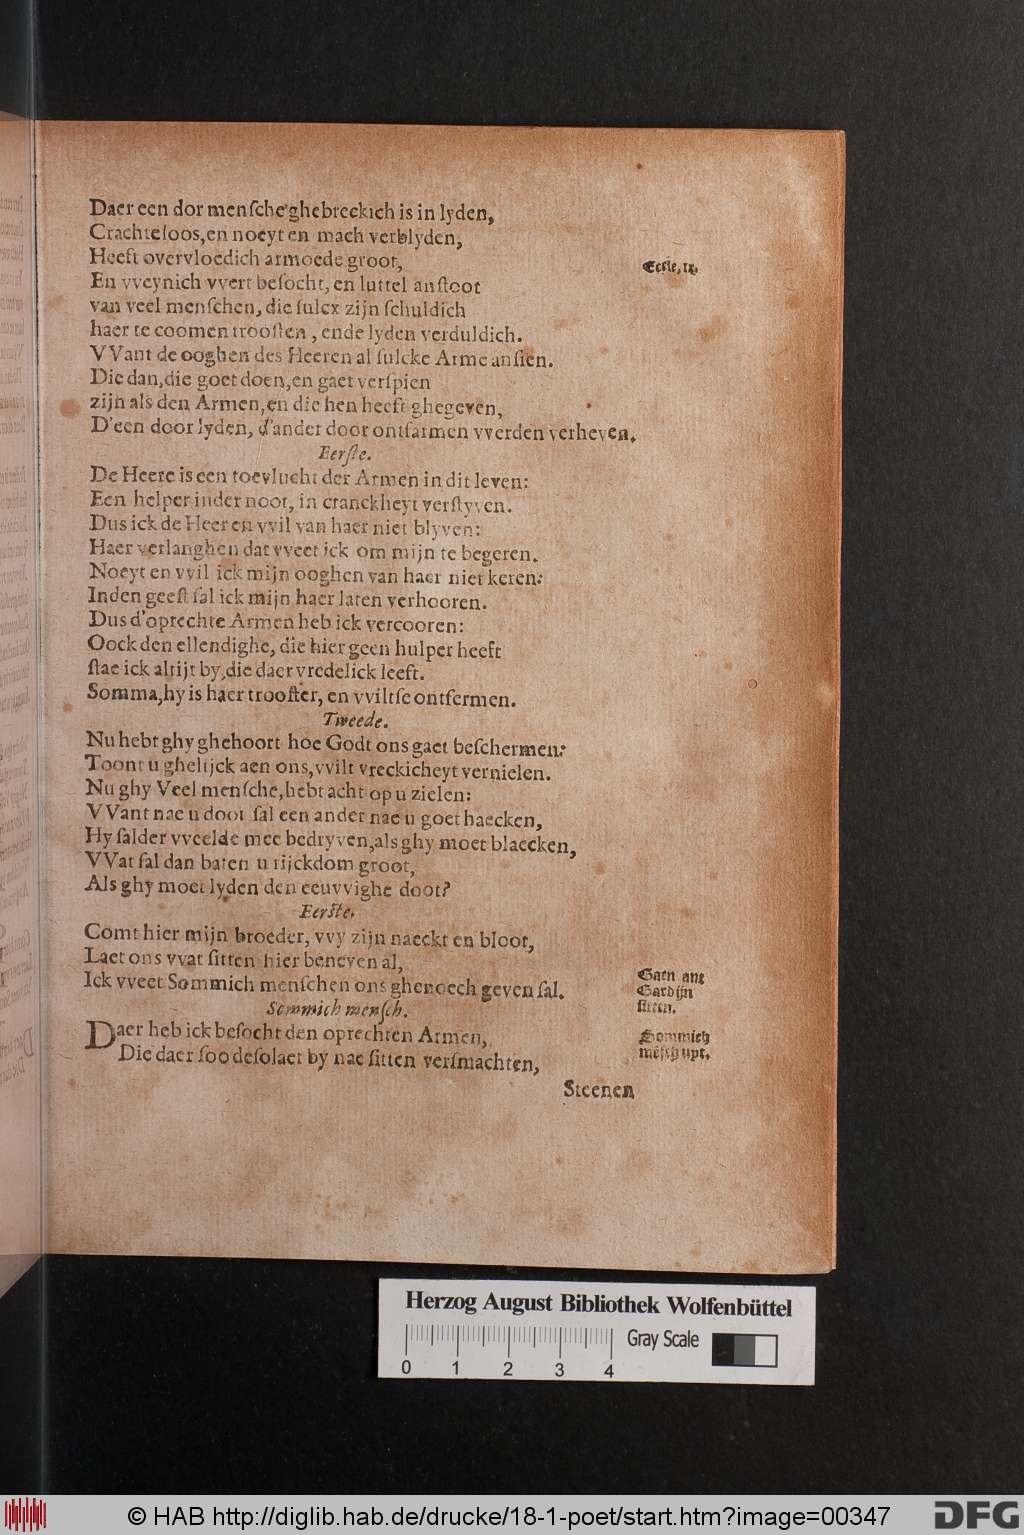 Daer een dor menſche ghebreckich is in lyden,
Crachteloos, en noeyt en mach verblyden,
Heeft overvloedich armoede groot,
Eccle. ix.
En vveynich vvert beſocht, en luttel anſtoot
van veel menſchen, die ſulcx zijn ſchuldich
haer te coomen trooſten, ende lyden verduldich.
VVant de ooghen des Heeren al ſulcke Arme anſien.
Die dan, die goet doen, en gaet verſpien
zijn als den Armen, en die hen heeft ghegeven,
D'een door lyden, d'ander door ontfarmen vverden verheven.
Eerſte.
De Heere is een toevlucht der Armen in dit leven:
Een helper inder noot, in cranckheyt verſtyven.
Dus ick de Heer en vvil van haer niet blyven:
Haer verlanghen dat vveet ick om mijn te begeren.
Noeyt en vvil ick mijn ooghen van haer niet keren:
Inden geeſt ſal ick mijn haer laten verhooren.
Dus d'oprechte Armen heb ick vercooren:
Oock den ellendighe, die hier geen hulper heeft
ſtae ick altijt by, die daer vredelick leeft.
Somma, hy is haer trooſter, en vviltſe ontfermen.
Tweede.
Nu hebt ghy ghehoort hoe Godt ons gaet beſchermen:
Toont u ghelijck aen ons, vvilt vreckicheyt vernielen.
Nu ghy Veel menſche, hebt acht op u zielen:
VVant nae u doot ſal een ander nae u goet haecken,
Hy ſalder vveelde mee bedryven, als ghy moet blaecken,
VVat ſal dan baten u rijckdom groot,
Als ghy moet lyden den eeuvvighe doot?
Eerſte.
Comt hier mijn broeder, vvy zijn naeckt en bloot,
Laet ons vvat ſitten hier beneven al,
Ick vveet Sommich menſchen ons ghenoech geven ſal.
Gaen ant
Gardijn
ſitten.
Sommich menſch.
Daer heb ick beſocht den oprechten Armen,
Die daer ſoo deſolaet by nae ſitten verſmachten,
Sommich
mẽſch upt.
Steenen
Herzog August Bibliothek Wolfenbüttel
Gray Scale
0 1 2 3 4
© HAB http://diglib.hab.de/drucke/18-1-poet/start.htm?image=00347
DFG